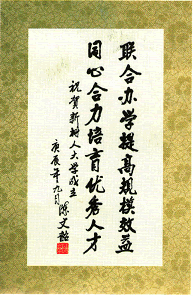 联合办学提高规模效益
同心合力培育优秀人才
祝贺新树人大学成立
庚辰年九月 陈文韶